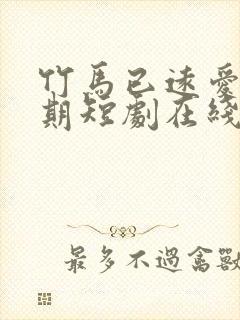 竹馬已逑愛
期短劇在綫
最多不過禽獸